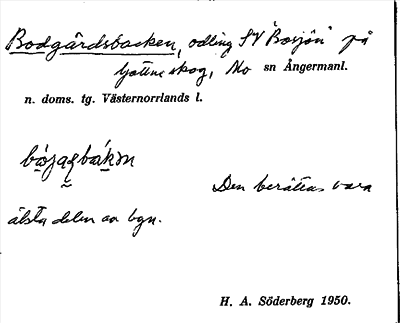 Bodgårdsbacken, odling SV "Borsjön" på
skog, Mo sn Ångermanl.
n. doms. tg. Västernorrlands l.
Den berättas vara
älsta delen av byn.
H. A. Söderberg 1950.